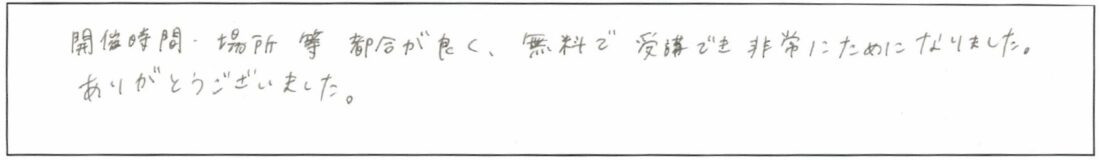 開催時間・場所 等 都合が良く、無料で 受講でき 非常にためになりました。
ありがとうございました。